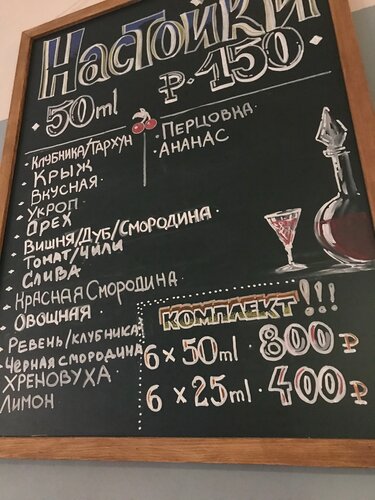 Настойки
50ml ₽·150
· Клубника/Тархун
· Крыж
· Вкусная
· Укроп
· Орех
· Вишня/Дуб/Смородина
· Томат/Чили
· Слива
· Красная Смородина
· Овощная
· Ревень/клубника
· Черная смородина
Хреновуха
Лимон
· Перцовка
· Ананас
Комплект!!!
6 × 50ml · 800 ₽
6 × 25ml · 400 ₽